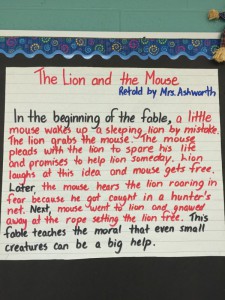 The Lion and the Mouse
Retold by Mrs. Ashworth
In the beginning of the fable, a little
mouse wakes up a sleeping lion by mistake.
The lion grabs the mouse. The mouse
pleads with the lion to spare his life
and promises to help lion someday. Lion
laughs at this idea and mouse gets free.
Later, the mouse hears the lion roaring in
fear because he got caught in a hunter's
net. Next, mouse went to lion and gnawed
away at the rope setting the lion free. This
fable teaches the moral that even small
creatures can be a big help.